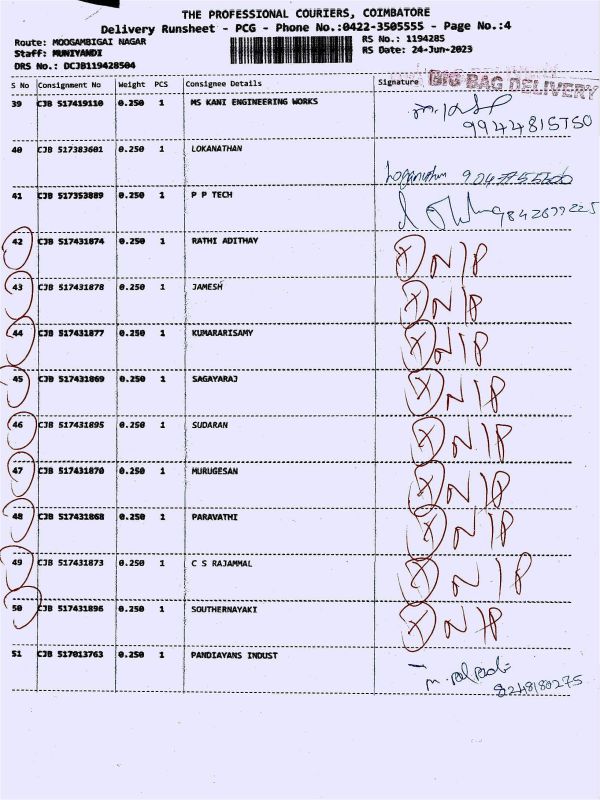 THE PROFESSIONAL COURIERS, COIMBATORE
Delivery Runsheet - PCG - Phone No.:0422-3505555 - Page No.:4
Route: MOOGAMBIGAI NAGAR RS No.: 1194285
Staff: MUNIYANDI RS Date: 24-Jun-2023
DRS No.: DCJB119428504
S No Consignment No Weight PCS Consignee Details Signature BIG BAG DELIVERY
39 CJB 517419110 0.250 1 MS KANI ENGINEERING WORKS
9944815750
40 CJB 517383601 0.250 1 LOKANATHAN
Loganathan
41 CJB 517353889 0.250 1 P P TECH
9842677225
42 CJB 517431874 0.250 1 RATHI ADITHAY X N/P
43 CJB 517431878 0.250 1 JAMESH X N/P
44 CJB 517431877 0.250 1 KUMARARISAMY X N/P
45 CJB 517431869 0.250 1 SAGAYARAJ X N/P
46 CJB 517431895 0.250 1 SUDARAN X N/P
47 CJB 517431870 0.250 1 MURUGESAN X N/P
48 CJB 517431868 0.250 1 PARAVATHI X N/P
49 CJB 517431873 0.250 1 C S RAJAMMAL X N/P
50 CJB 517431896 0.250 1 SOUTHERNAYAKI X N/P
51 CJB 517013763 0.250 1 PANDIAYANS INDUST
8248180275